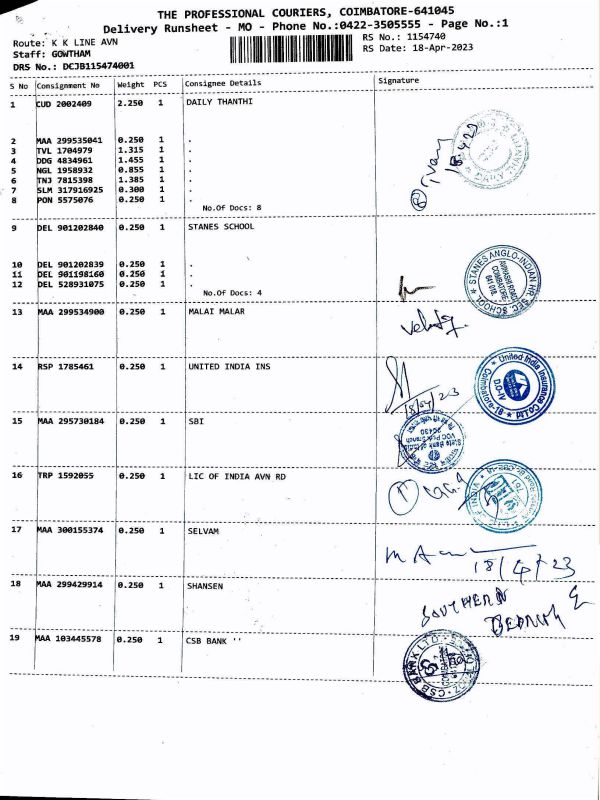 THE PROFESSIONAL COURIERS, COIMBATORE-641045
Delivery Runsheet - MO - Phone No.:0422-3505555 - Page No.:1
Route: K K LINE AVN
RS No.: 1154740
Staff: GOWTHAM
RS Date: 18-Apr-2023
DRS No.: DCJB115474001
S No Consignment No Weight PCS Consignee Details Signature
1 CUD 2002409 2.250 1 DAILY THANTHI
2 MAA 299535041 0.250 1 .
3 TVL 1704979 1.315 1 .
4 DDG 4834961 1.455 1 .
5 NGL 1958932 0.855 1 .
6 TNJ 7815398 1.385 1 .
7 SLM 317916925 0.300 1 .
8 PON 5575076 0.250 1 .
No.Of Docs: 8
18.4.23
DAILY THANTHI
9 DEL 901202840 0.250 1 STANES SCHOOL
10 DEL 901202839 0.250 1 .
11 DEL 901198160 0.250 1 .
12 DEL 528931075 0.250 1 .
No.Of Docs: 4
STANES ANGLO-INDIAN HR. SEC. SCHOOL
AVINASHI ROAD
COIMBATORE
641 018
13 MAA 299534900 0.250 1 MALAI MALAR
14 RSP 1785461 0.250 1 UNITED INDIA INS
18/04/23
United India Insurance Co. Ltd.
D.O-IV
Coimbatore-18
15 MAA 295730184 0.250 1 SBI
State Bank of India
VOC Park Branch
20430
16 TRP 1592055 0.250 1 LIC OF INDIA AVN RD
17 MAA 300155374 0.250 1 SELVAM
18/4/23
18 MAA 299429914 0.250 1 SHANSEN
SOUTHERN
19 MAA 103445578 0.250 1 CSB BANK ''
CSB BANK LTD